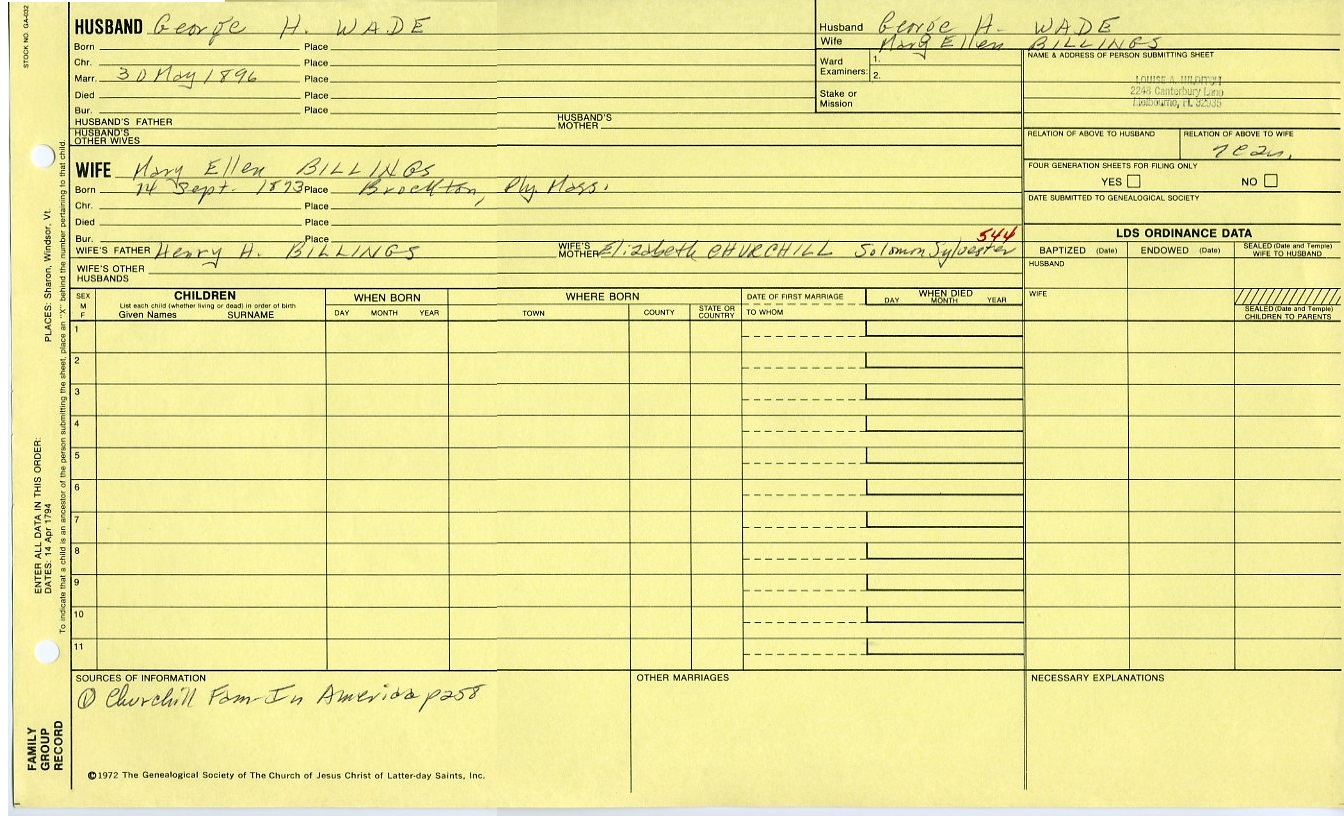 STOCK NO. GA-032
HUSBAND George H. WADE
Born Place
Chr. Place
Marr. 30 May 1896 Place
Died Place
Bur. Place
HUSBAND'S FATHER HUSBAND'S MOTHER
HUSBAND'S OTHER WIVES
Husband George H. WADE
Wife Mary Ellen BILLINGS
Ward Examiners: 1.
2.
Stake or Mission
NAME & ADDRESS OF PERSON SUBMITTING SHEET
LOUISE A. HILDITCH
2248 Canterbury Lane
Melbourne, FL 32935
RELATION OF ABOVE TO HUSBAND RELATION OF ABOVE TO WIFE
FOUR GENERATION SHEETS FOR FILING ONLY
YES NO
DATE SUBMITTED TO GENEALOGICAL SOCIETY
WIFE Mary Ellen BILLINGS
Born 14 Sept. 1873 Place Brockton, Ply. Mass.
Chr. Place
Died Place
Bur. Place
544
WIFE'S FATHER Henry H. BILLINGS WIFE'S MOTHER Elizabeth CHURCHILL Solomon Sylvester
WIFE'S OTHER HUSBANDS
LDS ORDINANCE DATA
BAPTIZED (Date) ENDOWED (Date) SEALED (Date and Temple) WIFE TO HUSBAND
HUSBAND
WIFE
SEALED (Date and Temple) CHILDREN TO PARENTS
SEX M F
CHILDREN
List each child (whether living or dead) in order of birth
Given Names SURNAME
WHEN BORN
DAY MONTH YEAR
WHERE BORN
TOWN COUNTY STATE OR COUNTRY
DATE OF FIRST MARRIAGE
TO WHOM
WHEN DIED
DAY MONTH YEAR
1
2
3
4
5
6
7
8
9
10
11
SOURCES OF INFORMATION
① Churchill Fam In America p258
OTHER MARRIAGES
NECESSARY EXPLANATIONS
©1972 The Genealogical Society of The Church of Jesus Christ of Latter-day Saints, Inc.
FAMILY GROUP RECORD
ENTER ALL DATA IN THIS ORDER:
DATES: 14 Apr 1794
PLACES: Sharon, Windsor, Vt.
To indicate that a child is an ancestor of the person submitting the sheet, place an "X" behind the number pertaining to that child.